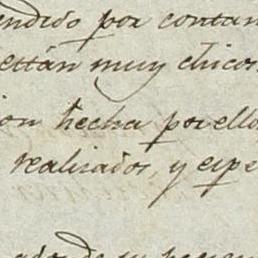 endido por contan
ettán muy chicos
ion hecha por ellos
realizados, y espe